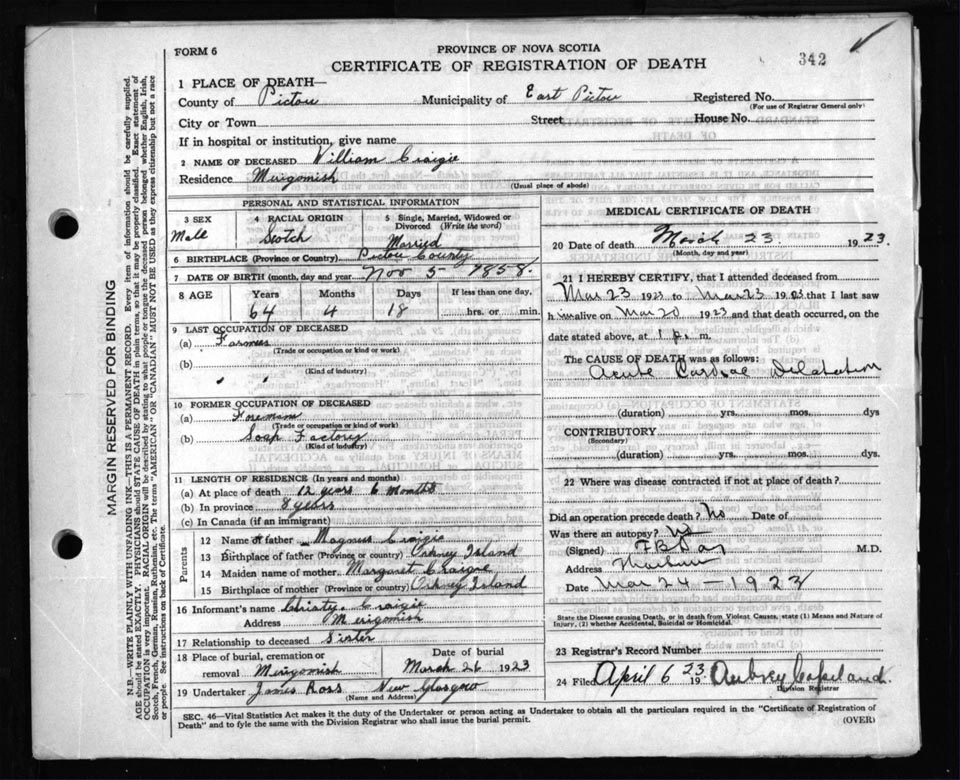 FORM 6
PROVINCE OF NOVA SCOTIA
CERTIFICATE OF REGISTRATION OF DEATH
342
1 PLACE OF DEATH—
County of Pictou Municipality of East Pictou Registered No.
(For use of Registrar General only)
City or Town Street House No.
If in hospital or institution, give name
2 NAME OF DECEASED William Craigie
Residence Merigomish
(Usual place of abode)
PERSONAL AND STATISTICAL INFORMATION
3 SEX
Male
4 RACIAL ORIGIN
Scotch
5 Single, Married, Widowed or Divorced (Write the word)
Married
6 BIRTHPLACE (Province or Country) Pictou County
7 DATE OF BIRTH (month, day and year Nov 5 1858.
8 AGE
Years Months Days If less than one day,
64 4 18 hrs. or min.
9 LAST OCCUPATION OF DECEASED
(a) Farmer
(Trade or occupation or kind or work)
(b)
(Kind of industry)
" "
10 FORMER OCCUPATION OF DECEASED
(a) Foreman
(Trade or occupation or kind of work)
(b) Soap Factory
(Kind of industry)
11 LENGTH OF RESIDENCE (In years and months)
(a) At place of death 12 years 6 months
(b) In province 8 years
(c) In Canada (if an immigrant)
Parents
12 Name of father Magnus Craigie
13 Birthplace of father (Province or country) Orkney Island
14 Maiden name of mother Margaret Craigie
15 Birthplace of mother (Province or country) Orkney Island
16 Informant's name Christy Craigie
Address Merigomish
17 Relationship to deceased Sister
18 Place of burial, cremation or removal Merigomish
Date of burial
March 26 1923
19 Undertaker James Ross New Glasgow
(Name and Address)
MEDICAL CERTIFICATE OF DEATH
20 Date of death March 23 1923.
(Month, day and year)
21 I HEREBY CERTIFY, that I attended deceased from
Mar 23 1923 to Mar 23 1923 that I last saw
him alive on Mar 20 1923 and that death occurred, on the
date stated above, at 1 p. m.
The CAUSE OF DEATH was as follows:
Acute Cardiac Dilatation
(duration) yrs. mos. dys
CONTRIBUTORY
(Secondary)
(duration) yrs. mos. dys.
22 Where was disease contracted if not at place of death?
Did an operation precede death? No Date of
Was there an autopsy? no
(Signed) M.D.
Address
Date Mar 24 - 1923
State the Disease causing Death, or in death from Violent Causes, state (1) Means and Nature of
Injury, (2) whether Accidental, Suicidal or Homicidal.
23 Registrar's Record Number
24 Filed April 6 1923 Aubrey Copeland.
Division Registrar
SEC. 46—Vital Statistics Act makes it the duty of the Undertaker or person acting as Undertaker to obtain all the particulars required in the "Certificate of Registration of
Death" and to fyle the same with the Division Registrar who shall issue the burial permit.
(OVER)
MARGIN RESERVED FOR BINDING
N.B.—WRITE PLAINLY WITH UNFADING INK—THIS IS A PERMANENT RECORD. Every item of information should be carefully supplied.
AGE should be stated EXACTLY. PHYSICIANS should STATE CAUSE OF DEATH in plain terms, so that it may be properly classified. Exact statement of
OCCUPATION is very important. RACIAL ORIGIN will be described by stating to what people or tongue the deceased person belonged whether English, Irish,
Scotch, French, German, Russian, Ruthenian, etc. The terms "AMERICAN" OR "CANADIAN" MUST NOT BE USED as they express citizenship but not a race
or people. See instructions on back of Certificate.